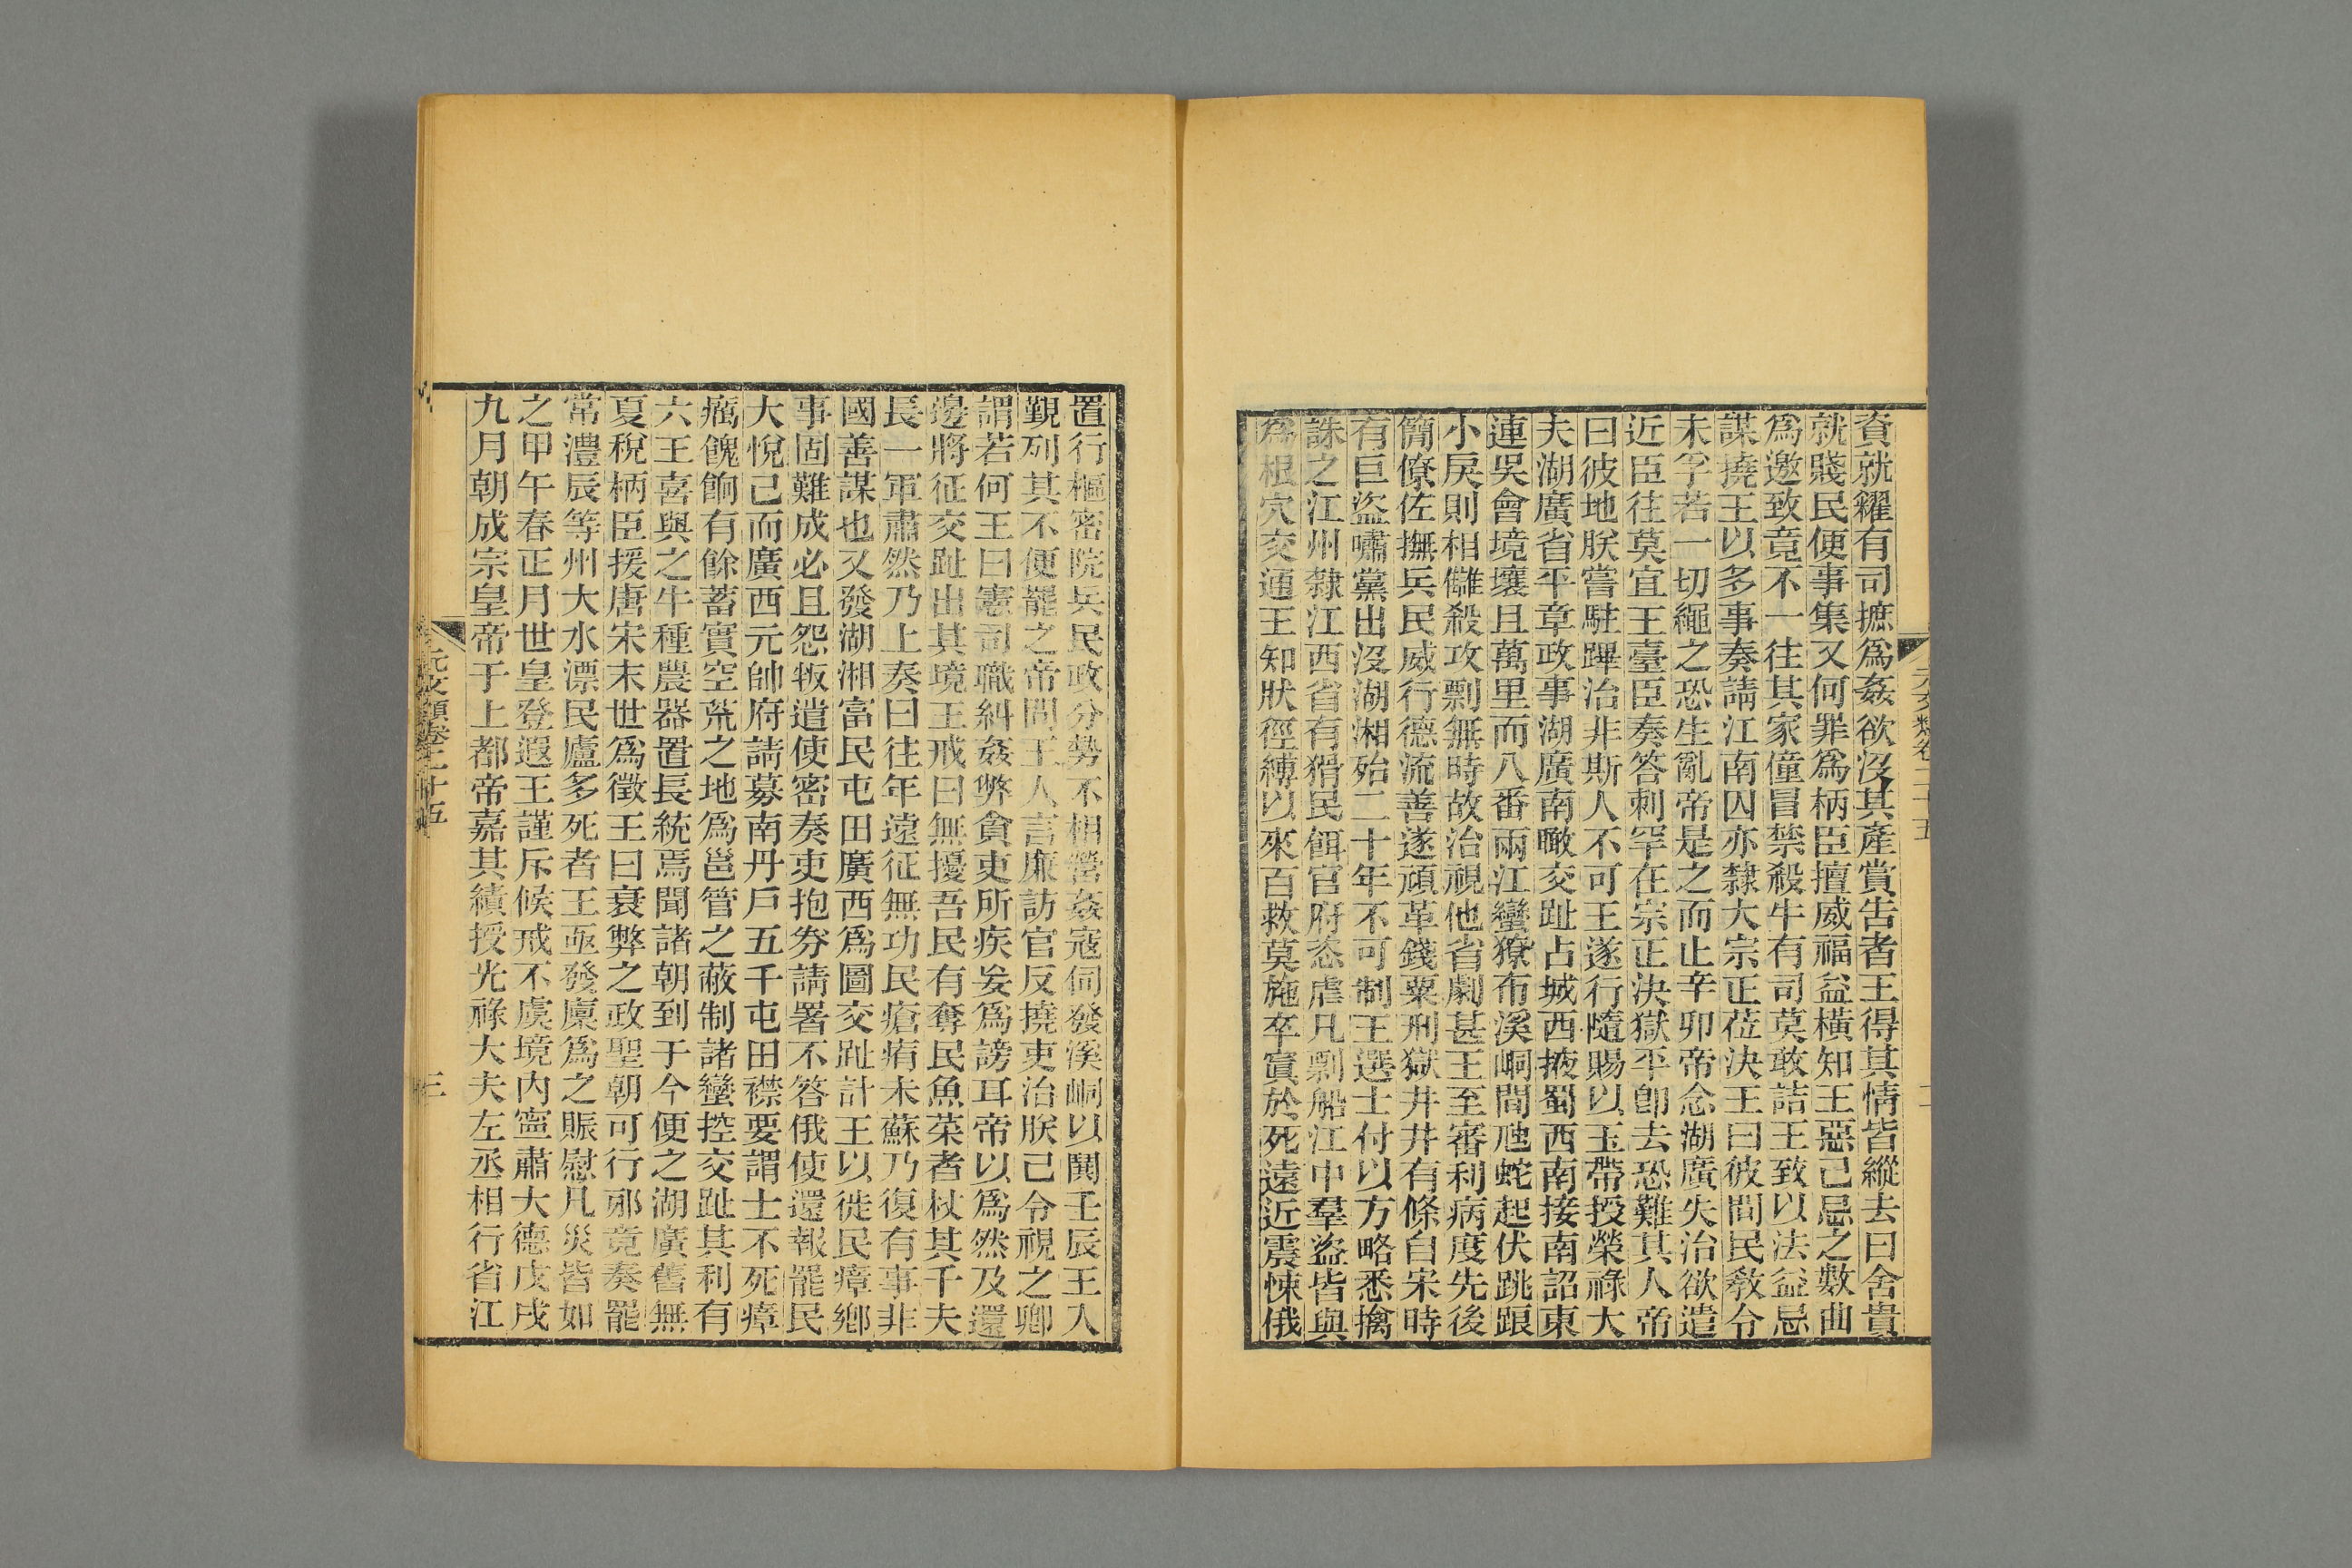 資就糴有司摭爲姦欲沒其產賞告者王得其情皆縱去曰舍貴
就賤民便事集又何罪爲柄臣擅威福益橫知王惡己忌之數曲
爲邀致竟不一往其家僮冒禁殺牛有司莫敢詰王致以法益忌
謀撓王以多事奏請江南囚亦隸大宗正莅決王曰彼間民敎令
未孚若一切繩之恐生亂帝是之而止辛卯帝念湖廣失治欲遣
近臣往莫宜王臺臣奏答刺罕在宗正決獄平卽去恐難其人帝
曰彼地朕嘗駐蹕治非斯人不可王遂行隨賜以玉帶授榮祿大
夫湖廣省平章政事湖廣南瞰交趾占城西掖蜀西南接南詔東
連吳會境壤且萬里而八番兩江蠻獠布溪峒間虺蛇起伏跳踉
小戾則相讎殺攻剽無時故治視他省劇甚王至審利病度先後
簡僚佐撫兵民威行德流善遂頑革錢粟刑獄井井有條自宋時
有巨盜嘯黨出沒湖湘殆二十年不可制王選士付以方略悉擒
誅之江州隸江西省有猾民餌官府恣虐凡剽船江中羣盜皆與
爲根穴交通王知狀徑縛以來百救莫施卒寘於死遠近震悚俄
元文類卷二十五
二
置行樞密院兵民政分勢不相營姦寇伺發溪峒以鬨壬辰王入
覲列其不便罷之帝問王人言廉訪官反撓吏治朕己令視之卿
謂若何王曰憲司職糾姦弊貪吏所疾妄爲謗耳帝以爲然及還
邊將征交趾出其境王戒曰無擾吾民有奪民魚菜者杖其千夫
長一軍肅然乃上奏曰往年遠征無功民瘡痏未蘇乃復有事非
國善謀也又發湖湘富民屯田廣西爲圖交趾計王以徙民瘴鄕
事固難成必且怨叛遣使密奏吏抱劵請署不答俄使還報罷民
大悅己而廣西元帥府請募南丹戶五千屯田襟要謂士不死瘴
癘餽餉有餘蓄實空荒之地爲邕管之蔽制諸蠻控交趾其利有
六王喜與之牛種農器置長統焉聞諸朝到于今便之湖廣舊無
夏稅柄臣援唐宋末世爲徵王曰衰弊之政聖朝可行邪竟奏罷
常澧辰等州大水漂民廬多死者王亟發廩爲之賑慰凡災皆如
之甲午春正月世皇登遐王謹斥候戒不虞境內寧肅大德戊戌
九月朝成宗皇帝于上都帝嘉其績授光祿大夫左丞相行省江
元文類卷二十五
三